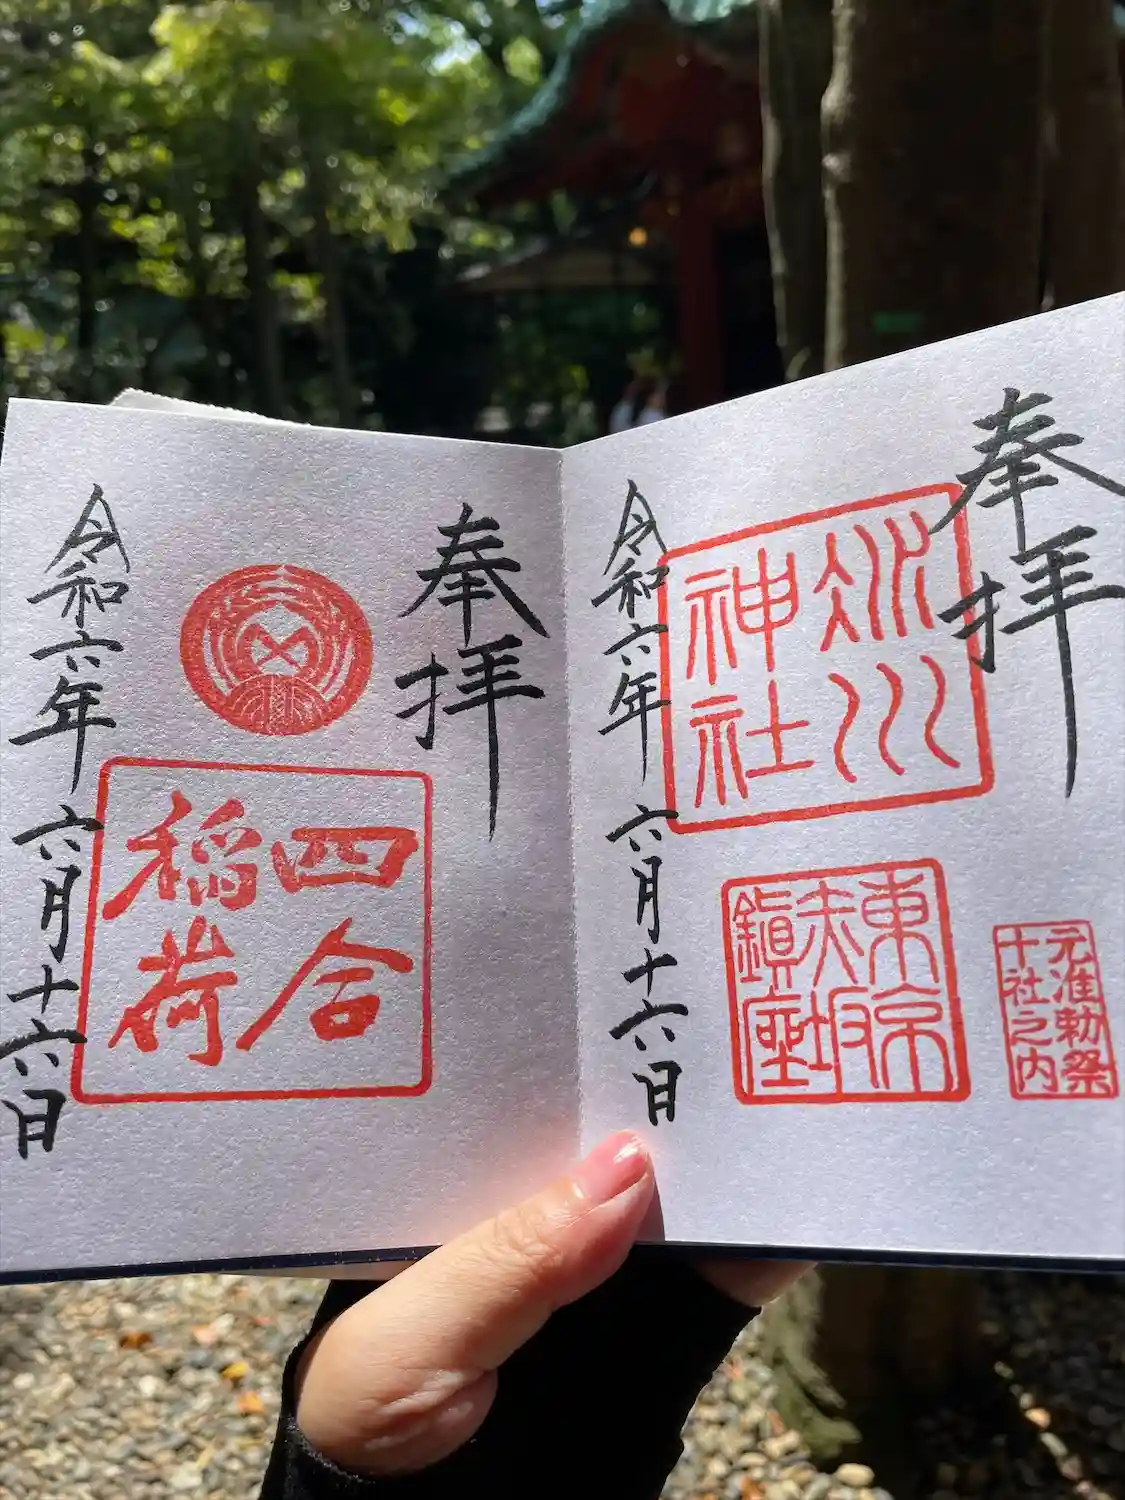 奉拝
氷川神社
元准勅祭
十社之内
東京
赤坂
鎮座
令和六年 六月十六日
奉拝
四合
稲荷
令和六年 六月十六日